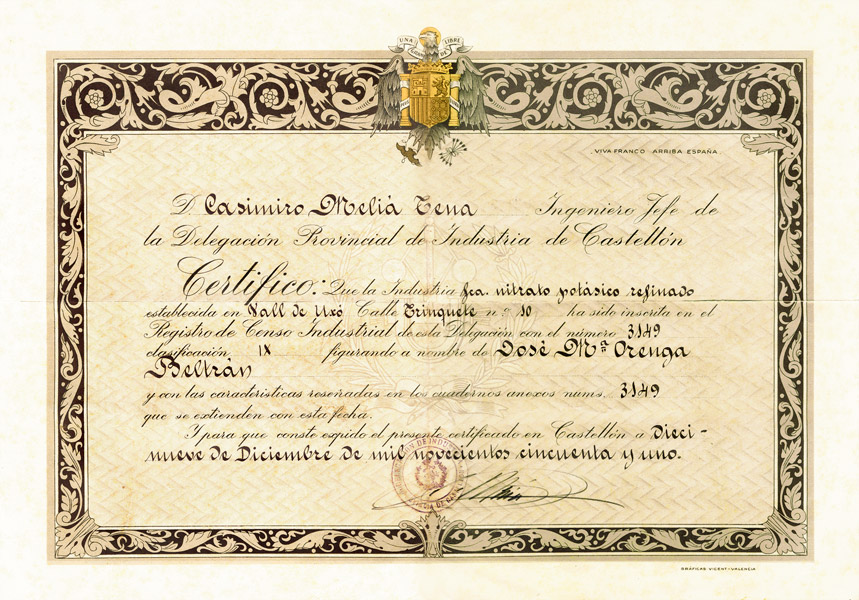 UNA GRANDE LIBRE
VIVA FRANCO ARRIBA ESPAÑA
D. Casimiro Meliá Tena Ingeniero Jefe de
la Delegación Provincial de Industria de Castellón
Certifico: Que la Industria fca. nitrato potásico refinado
establecida en Vall de Uxó Calle Trinquete n.º 10 ha sido inscrita en el
Registro de Censo Industrial de esta Delegación con el número 3149
clasificación IX figurando a nombre de José Mª Orenga
Beltrán
y con las características reseñadas en los cuadernos anexos nums. 3149
que se extienden con esta fecha.
Y para que conste expido el presente certificado en Castellón a Dieci-
nueve de Diciembre de mil novecientos cincuenta y uno.
GRÁFICAS VICENT-VALENCIA